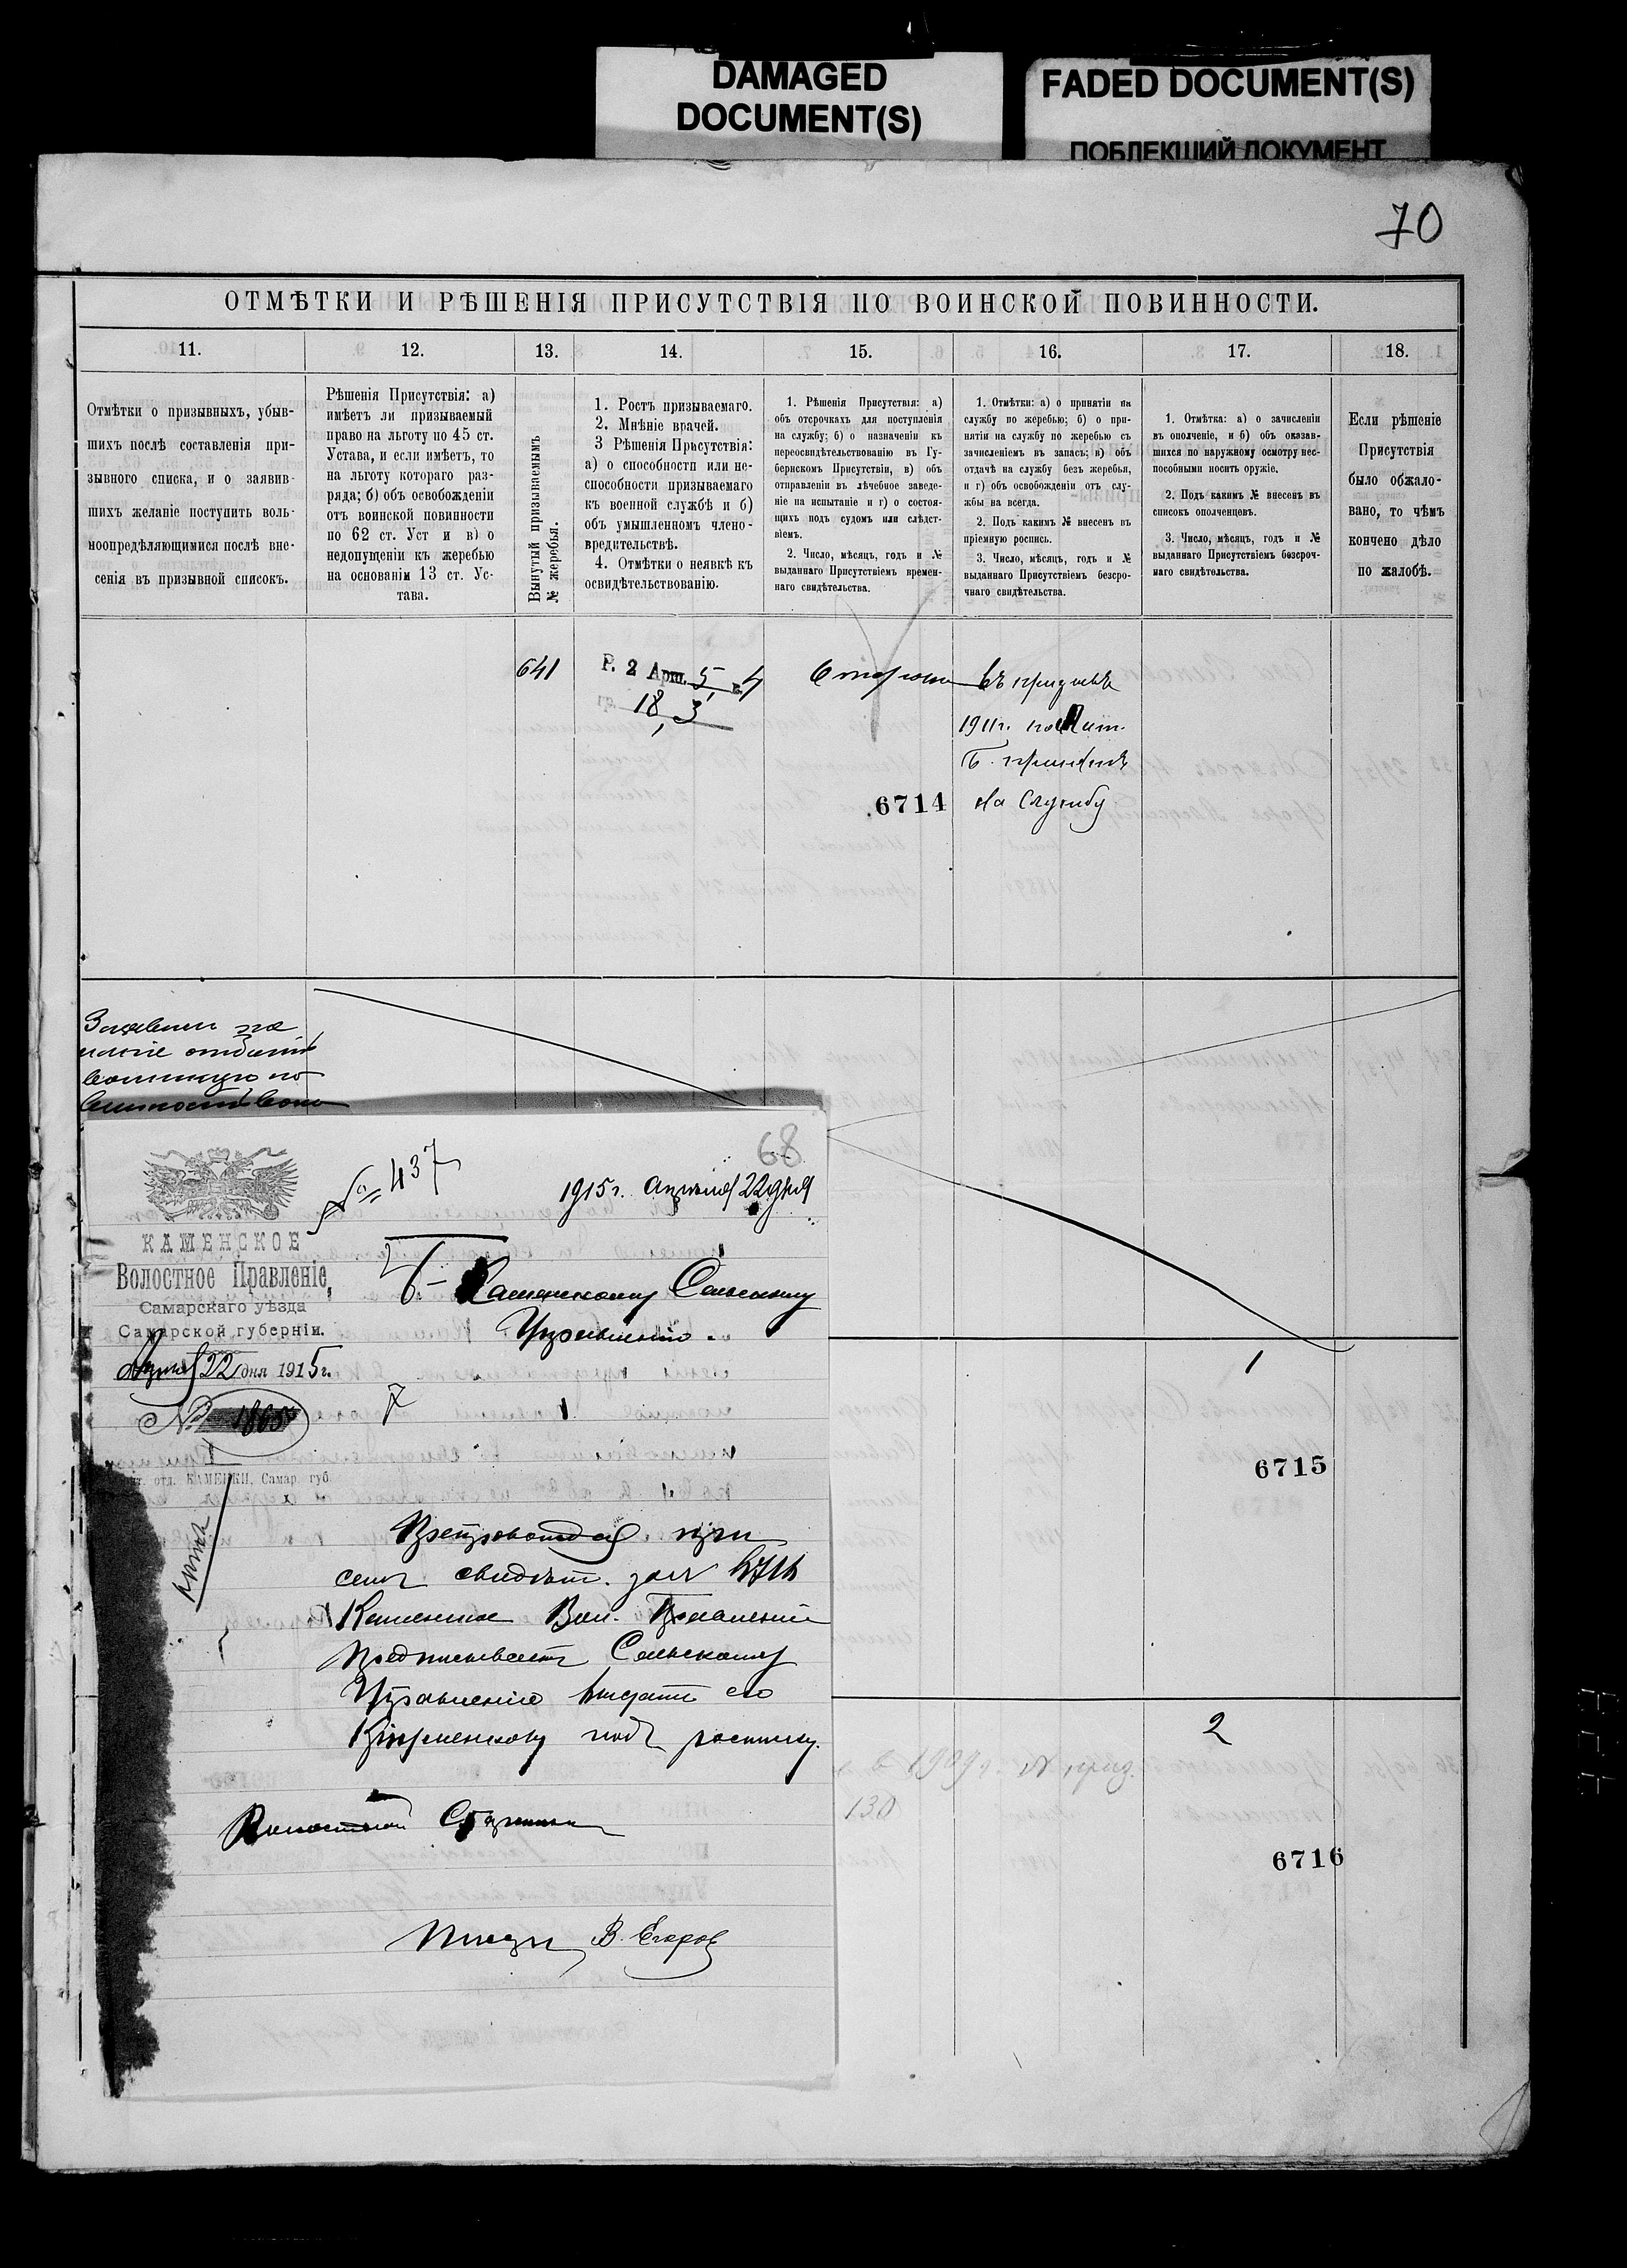 DAMAGED
DOCUMENT(S)
FADED DOCUMENT(S)
ПОБЛЕКШИЙ ДОКУМЕНТ
70
ОТМѢТКИ И РѢШЕНІЯ ПРИСУТСТВІЯ ПО ВОИНСКОЙ ПОВИННОСТИ.
11.
12.
13.
14.
15.
16.
17.
18.
Отмѣтки о призывныхъ, убыв-
шихъ послѣ составленія при-
зывного списка, и о заявив-
шихъ желаніе поступить воль-
ноопредѣляющимися послѣ вне-
сенія въ призывной списокъ.
Рѣшенія Присутствія: а)
имѣетъ ли призываемый
право на льготу по 45 ст.
Устава, и если имѣетъ, то
на льготу котораго раз-
ряда; б) объ освобожденіи
отъ воинской повинности
по 62 ст. Уст и в) о
недопущеніи къ жеребью
на основаніи 13 ст. Ус-
тава.
Вынутый призываемымъ
№ жеребья.
1. Ростъ призываемаго.
2. Мнѣніе врачей.
3 Рѣшенія Присутствія:
а) о способности или не-
способности призываемаго
къ военной службѣ и б)
объ умышленномъ члено-
вредительствѣ.
4. Отмѣтки о неявкѣ къ
освидѣтельствованію.
1. Рѣшенія Присутствія: а)
объ отсрочкахъ для поступленія
на службу; б) о назначеніи къ
переосвидѣтельствованію въ Гу-
бернскомъ Присутствіи, в) объ
отправленіи въ лѣчебное заведе-
ніе на испытаніе и г) о состоя-
щихъ подъ судомъ или слѣдст-
віемъ.
2. Число, мѣсяцъ, годъ и №
выданнаго Присутствіемъ времен-
наго свидѣтельства.
1. Отмѣтки: а) о принятіи на
службу по жеребью; б) о при-
нятіи на службу по жеребью съ
зачисленіемъ въ запасъ; в) объ
отдачѣ на службу безъ жеребья,
и г) объ освобожденіи отъ слу-
жбы на всегда.
2. Подъ какимъ № внесенъ въ
пріемную роспись.
3. Число, мѣсяцъ, годъ и №
выданнаго Присутствіемъ безсро-
чнаго свидѣтельства.
1. Отмѣтка: а) о зачисленіи
въ ополченіе, и б) объ оказав-
шихся по наружному осмотру нес-
пособными носить оружіе.
2. Подъ какимъ № внесенъ въ
списокъ ополченцевъ.
3. Число, мѣсяцъ, годъ и №
выданнаго Присутствіемъ безсроч-
наго свидѣтельства.
Если рѣшеніе
Присутствія
было обжало-
вано, то чѣмъ
кончено дѣло
по жалобѣ.
641
Р. 2 Арш. 5 в. 4
18, 3
въ призывѣ
1911г. по Лит.
Б. принятъ
на службу
6714
Заявилъ же
ланіе отбыть
воинскую по
винность
68
№ 437
1915 г. апрѣля 22 дня
КАМЕНСКОЕ
Волостное Правленіе,
Самарскаго уѣзда
Самарской губерніи.
Апрѣля 22 дня 1915 г.
№ 1865
почт. отд. КАМЕНКИ, Самар. губ.
Каменскому Сельскому
Управленію.
Препровождая при
семъ свидѣт. за №
Каменское Вол. Правленіе
предписываетъ Сельскому
Управленію выдать его
подъ росписку.
Волостной Старшина
Писарь В. Егоровъ
1
6715
2
в 1909 г. № приз.
130
6716